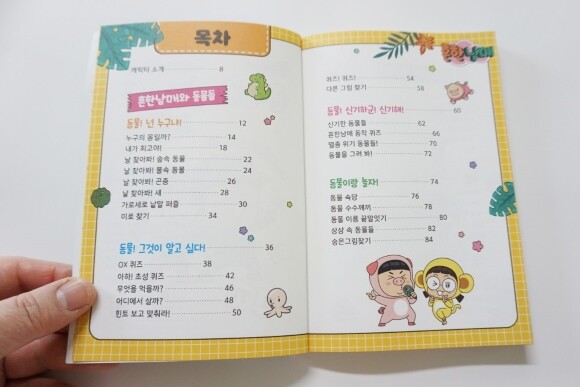 목차
캐릭터 소개 8
흔한남매와 동물들
동물! 넌 누구냐! 12
누구의 몸일까? 14
내가 최고야! 18
날 찾아봐! 숲속 동물 22
날 찾아봐! 물속 동물 24
날 찾아봐! 곤충 26
날 찾아봐! 새 28
가로세로 낱말 퍼즐 30
미로 찾기 34
동물! 그것이 알고 싶다! 36
OX 퀴즈 38
아하! 초성 퀴즈 42
무엇을 먹을까? 46
어디에서 살까? 48
힌트 보고 맞춰라! 50
흔한남매
퀴즈! 퀴즈! 54
다른 그림 찾기 58
동물! 신기하군! 신기해! 60
신기한 동물들 62
흔한남매 동작 퀴즈 66
멸종 위기 동물들! 70
동물을 그려 봐! 72
동물이랑 놀자! 74
동물 속담 76
동물 수수께끼 78
동물 이름 끝말잇기 80
상상 속 동물들 82
숨은그림찾기 84